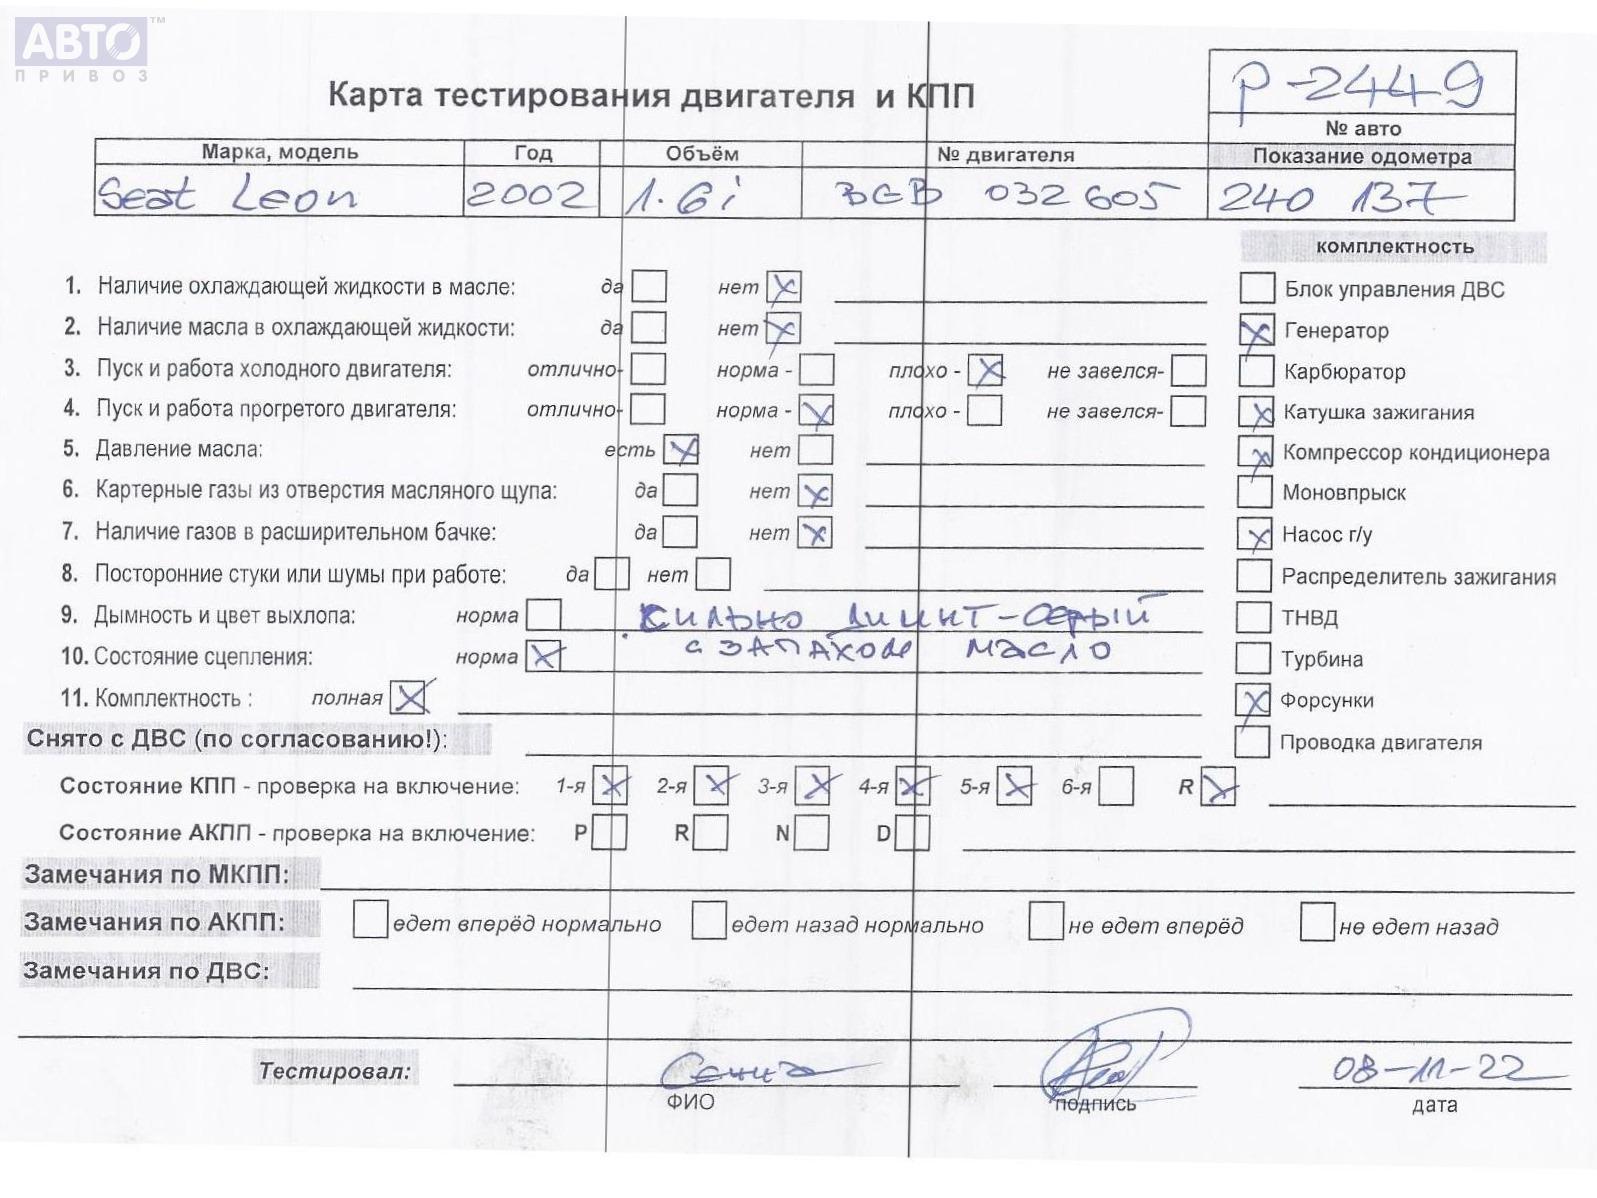 АВТО™
ПРИВОЗ
Карта тестирования двигателя и КПП
P-2449
№ авто
Марка, модель Год Объём № двигателя Показание одометра
Seat Leon 2002 1.6i 032605 240 137
комплектность
1. Наличие охлаждающей жидкости в масле: да нет Блок управления ДВС
2. Наличие масла в охлаждающей жидкости: да нет Генератор
3. Пуск и работа холодного двигателя: отлично- норма - плохо - не завелся- Карбюратор
4. Пуск и работа прогретого двигателя: отлично- норма - плохо - не завелся- Катушка зажигания
5. Давление масла: есть нет Компрессор кондиционера
6. Картерные газы из отверстия масляного щупа: да нет Моновпрыск
7. Наличие газов в расширительном бачке: да нет Насос г/у
8. Посторонние стуки или шумы при работе: да нет Распределитель зажигания
9. Дымность и цвет выхлопа: норма сильно димит-серый ТНВД
10. Состояние сцепления: норма с запахом масло Турбина
11. Комплектность : полная Форсунки
Снято с ДВС (по согласованию!): Проводка двигателя
Состояние КПП - проверка на включение: 1-я 2-я 3-я 4-я 5-я 6-я R
Состояние АКПП - проверка на включение: P R N D
Замечания по МКПП:
Замечания по АКПП: едет вперёд нормально едет назад нормально не едет вперёд не едет назад
Замечания по ДВС:
Тестировал: 08-11-22
ФИО подпись дата